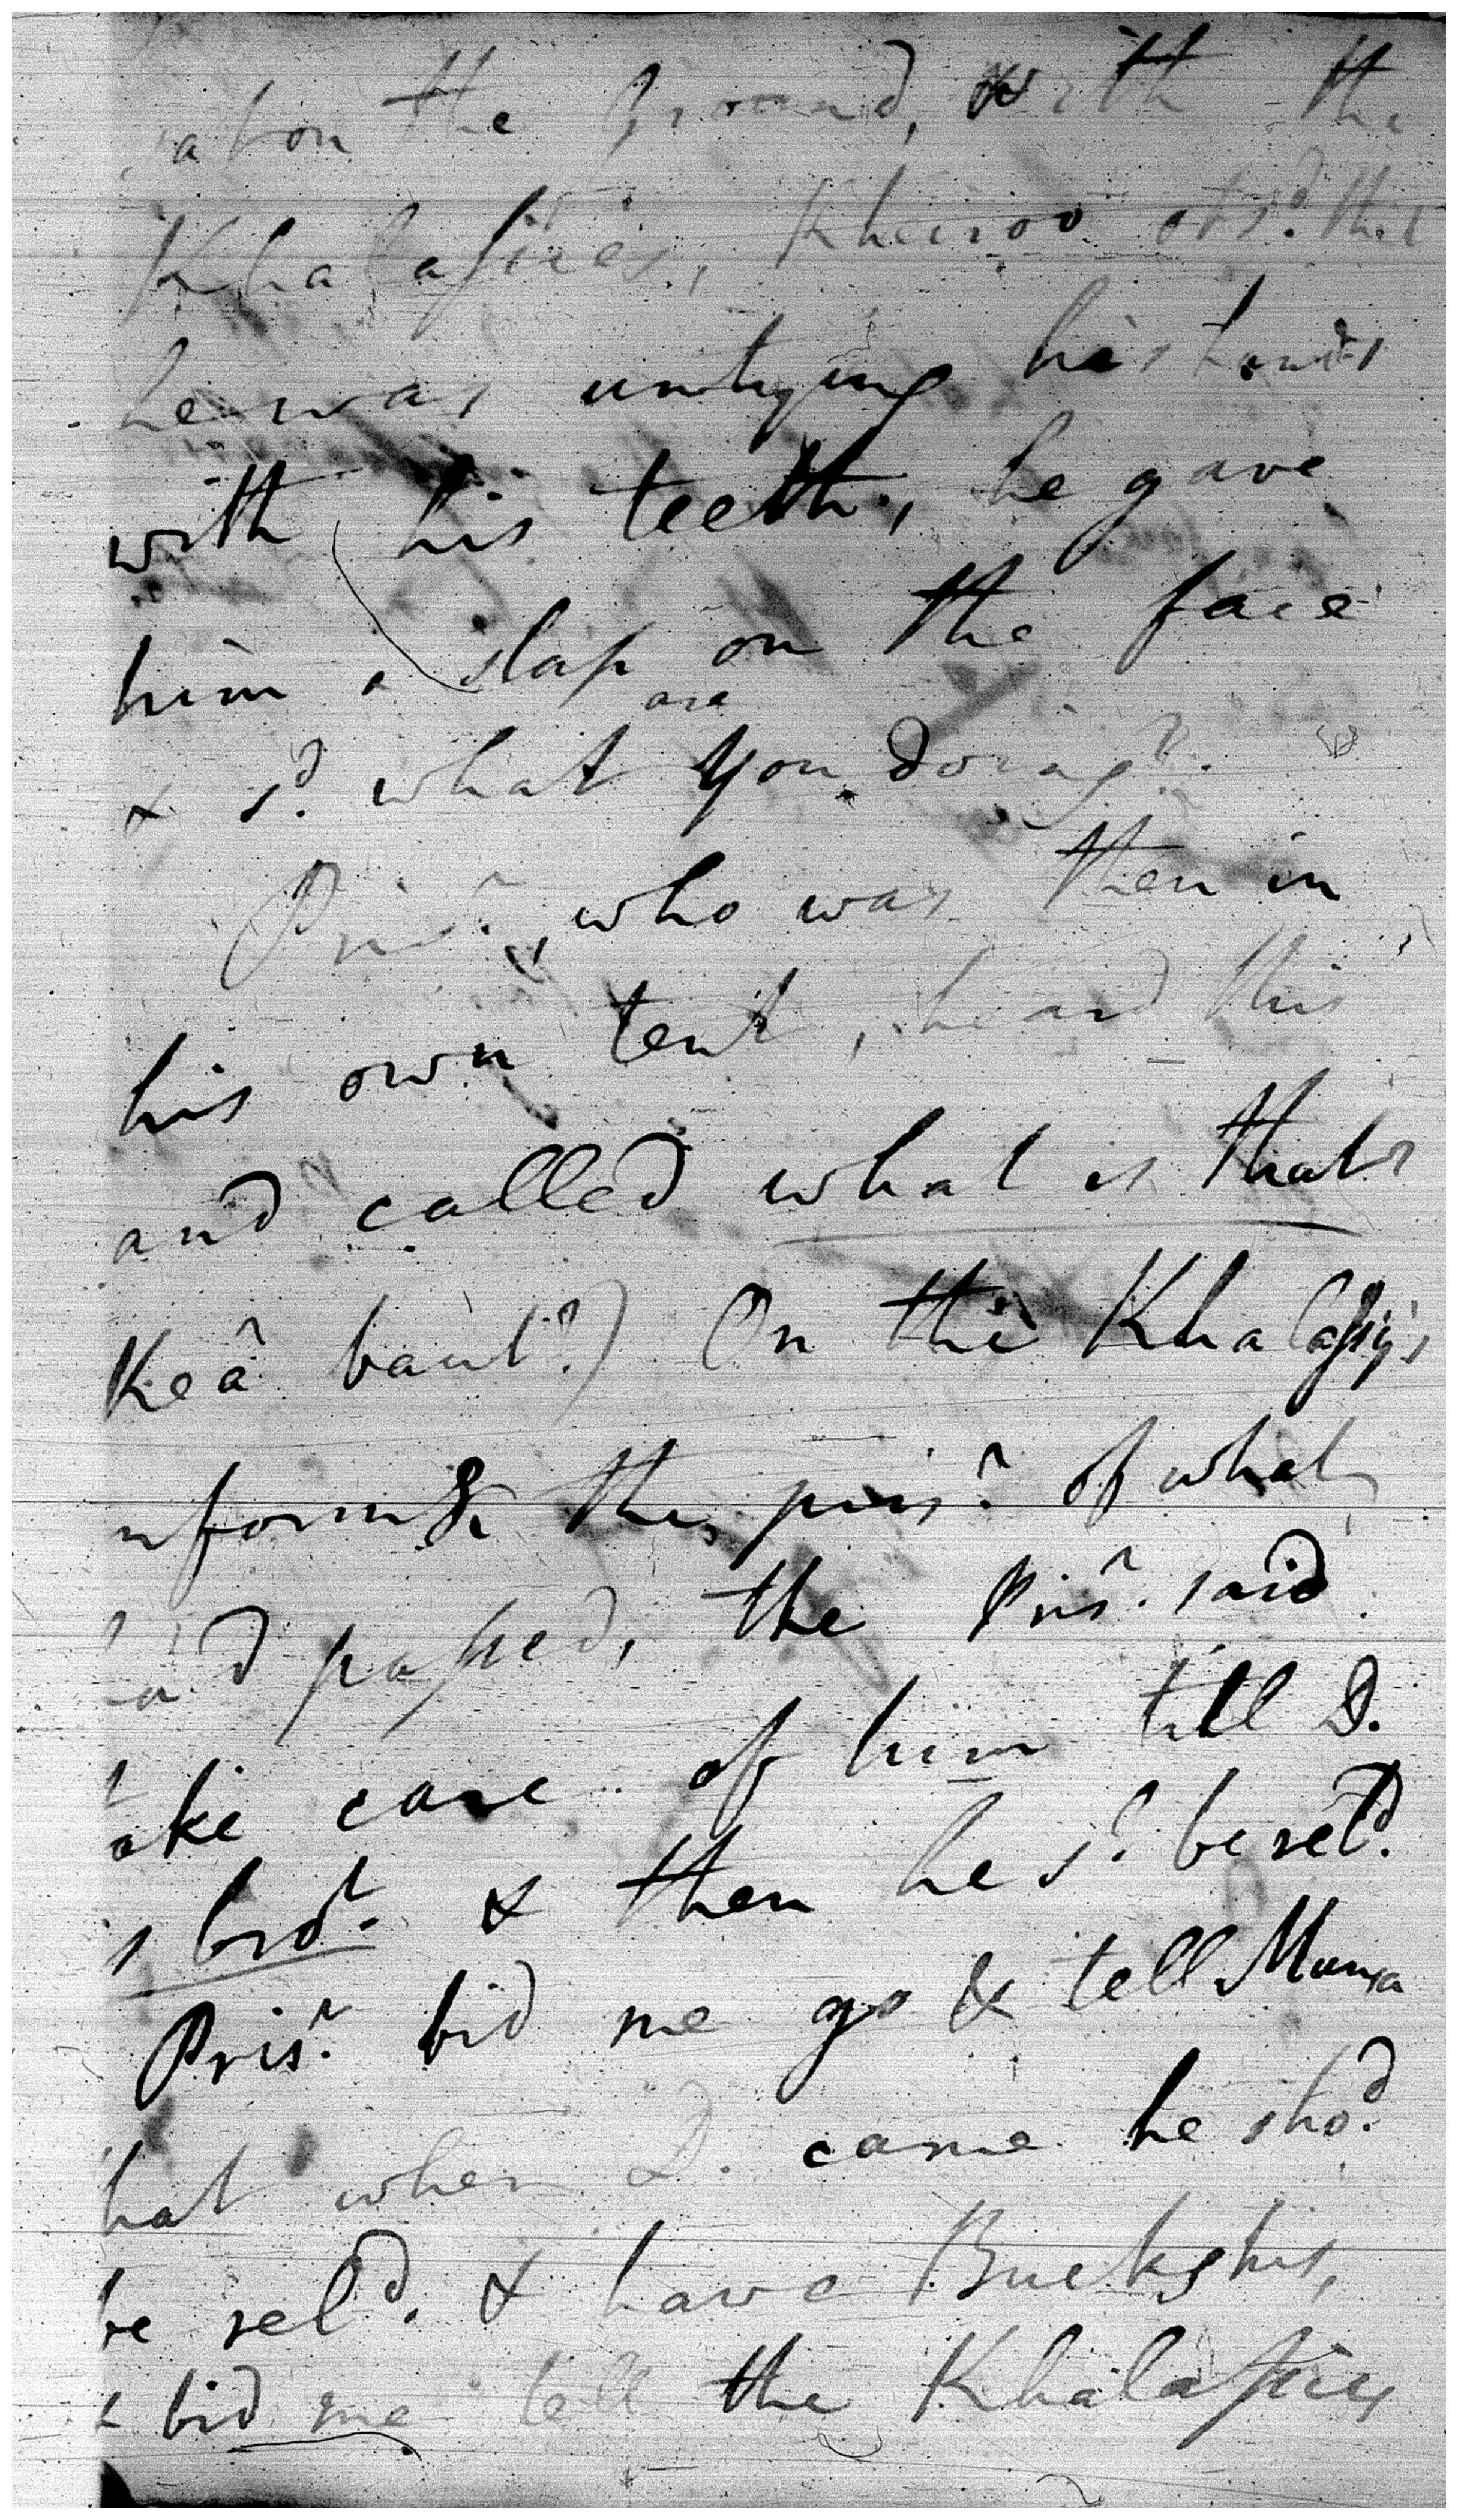 on the Ground, with the
Khalassies, Kheiroo obs.d that
he was untying his hands
with his teeth, he gave
him a slap on the face
& s.d what are you doing?
Pris.r, who was then in
his own tent, heard this
and called what is that?
Keâ baut?) On the Khalassy's
nform.g the pris.r of what
had passed, the Pris.r said
take care of him till D.
's bro.r & then he s.d be rel.d
Pris.r bid me go & tell Muna
hat when D. came he sho.d
be rel.d & have Buckshis,
& bid me tell the Khalassies